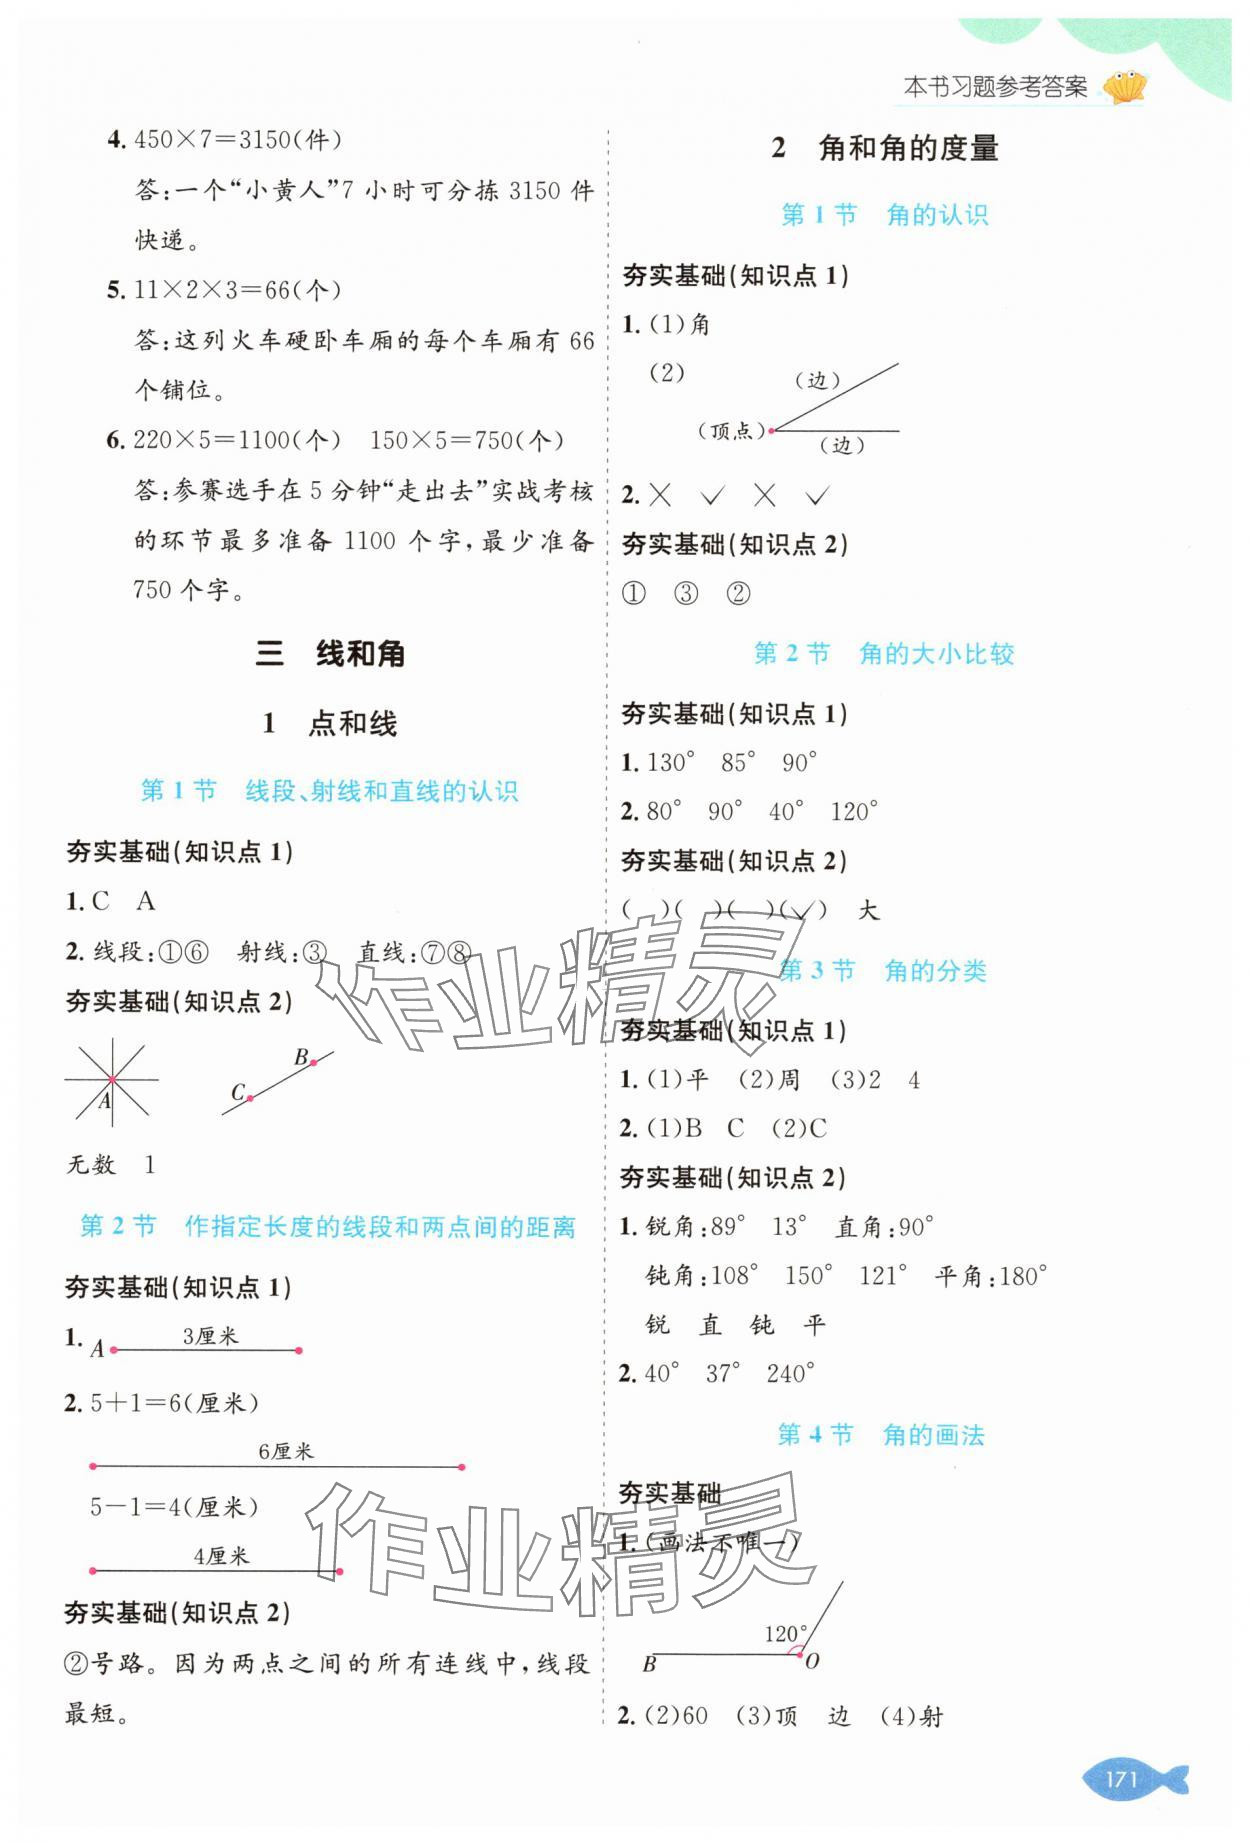 本书习题参考答案
4. 450×7=3150(件)
答:一个“小黄人”7 小时可分拣 3150 件
快递。
5. 11×2×3=66(个)
答:这列火车硬卧车厢的每个车厢有 66
个铺位。
6. 220×5=1100(个) 150×5=750(个)
答:参赛选手在 5 分钟“走出去”实战考核
的环节最多准备 1100 个字,最少准备
750 个字。
三 线和角
1 点和线
第 1 节 线段、射线和直线的认识
夯实基础(知识点 1)
1. C A
2. 线段:①⑥ 射线:③ 直线:⑦⑧
夯实基础(知识点 2)
A
B
C
无数 1
第 2 节 作指定长度的线段和两点间的距离
夯实基础(知识点 1)
1. A 3厘米
2. 5+1=6(厘米)
6厘米
5-1=4(厘米)
4厘米
夯实基础(知识点 2)
②号路。因为两点之间的所有连线中,线段
最短。
2 角和角的度量
第 1 节 角的认识
夯实基础(知识点 1)
1. (1)角
(2)
(边)
(顶点)
(边)
2. × ✓ × ✓
夯实基础(知识点 2)
① ③ ②
第 2 节 角的大小比较
夯实基础(知识点 1)
1. 130° 85° 90°
2. 80° 90° 40° 120°
夯实基础(知识点 2)
( )( )( )(✓) 大
第 3 节 角的分类
夯实基础(知识点 1)
1. (1)平 (2)周 (3)2 4
2. (1)B C (2)C
夯实基础(知识点 2)
1. 锐角:89° 13° 直角:90°
钝角:108° 150° 121° 平角:180°
锐 直 钝 平
2. 40° 37° 240°
第 4 节 角的画法
夯实基础
1. (画法不唯一)
120°
B O
2. (2)60 (3)顶 边 (4)射
171
作业精灵
作业精灵